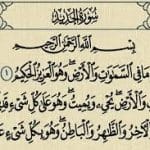 سُورَةُ الحَدِيد
بِسْمِ اللَّهِ الرَّحْمَٰنِ الرَّحِيمِ
مَا فِي السَّمَاوَاتِ وَالْأَرْضِ وَهُوَ الْعَزِيزُ الْحَكِيمُ ١
وَالْأَرْضِ يُحْيِي وَيُمِيتُ وَهُوَ عَلَىٰ كُلِّ شَيْءٍ
وَالْآخِرُ وَالظَّاهِرُ وَالْبَاطِنُ وَهُوَ بِكُلِّ شَيْءٍ